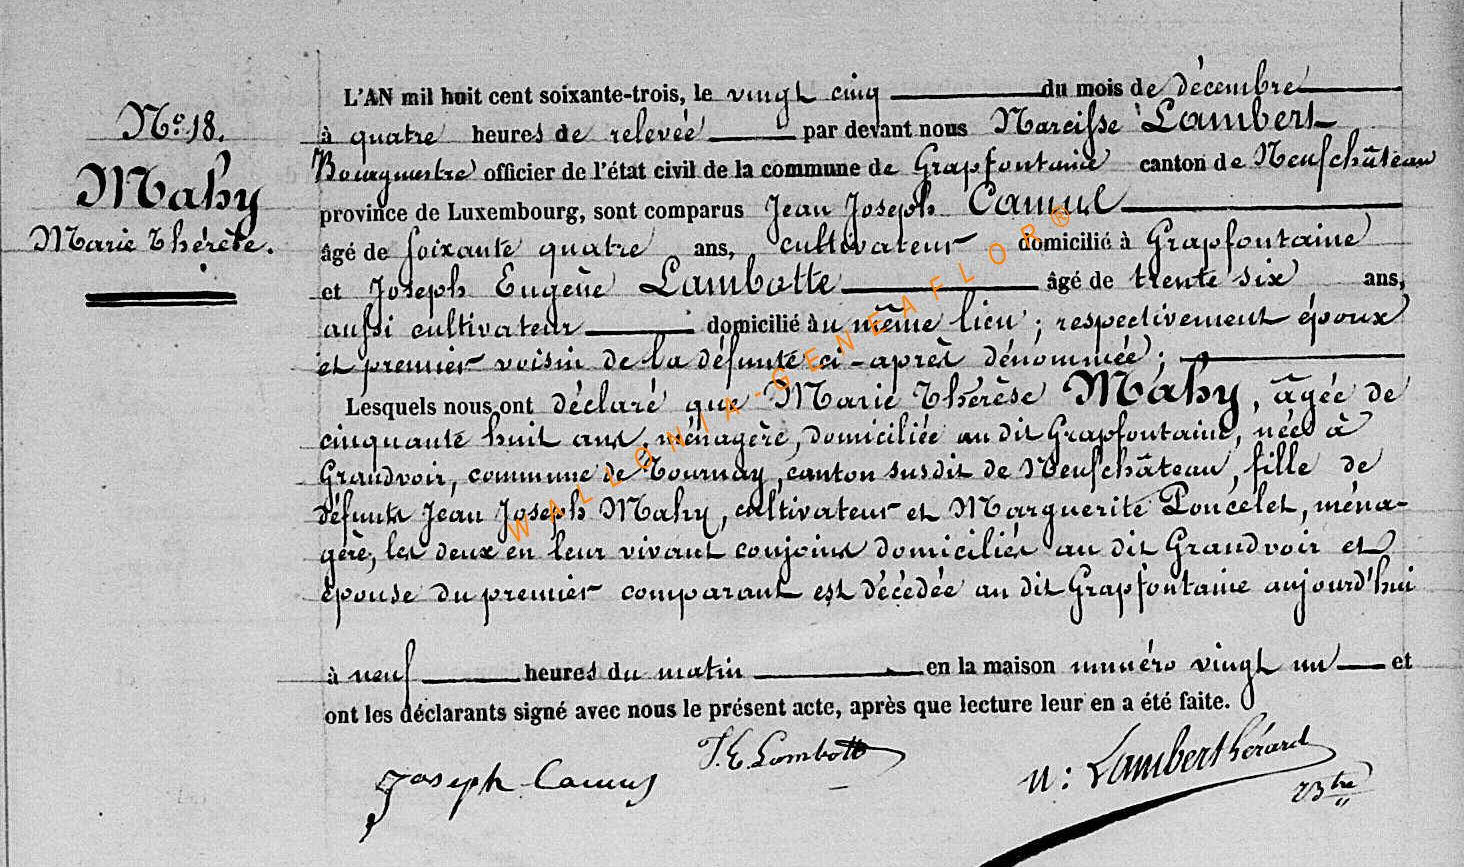 N° 18.
Mahy
Marie Thérèse.
L'AN mil huit cent soixante-trois, le vingt cinq du mois de décembre
à quatre heures de relevée par devant nous Narcisse Lambert
Bourgmestre officier de l'état civil de la commune de Grapfontaine canton de Neufchâteau
province de Luxembourg, sont comparus Jean Joseph Camus
âgé de soixante quatre ans, cultivateur domicilié à Grapfontaine
et Joseph Eugène Lambotte âgé de trente six ans,
aussi cultivateur domicilié au même lieu ; respectivement époux
et premier voisin de la défunte ci-après dénommée ;
Lesquels nous ont déclaré que Marie Thérèse Mahy, âgée de
cinquante huit ans, ménagère, domiciliée au dit Grapfontaine, née à
Grandvoir, commune de Tournay, canton susdit de Neufchâteau, fille de
défunts Jean Joseph Mahy, cultivateur et Marguerite Poncelet, ména-
gère, les deux en leur vivant conjoints domiciliés au dit Grandvoir et
épouse du premier comparant est décédée au dit Grapfontaine aujourd'hui
à neuf heures du matin en la maison numéro vingt un et
ont les déclarants signé avec nous le présent acte, après que lecture leur en a été faite.
Joseph Camus
J. E. Lambotte
N: Lambert Gérard
Bstre
WALLONIA-GENEAFLOR®